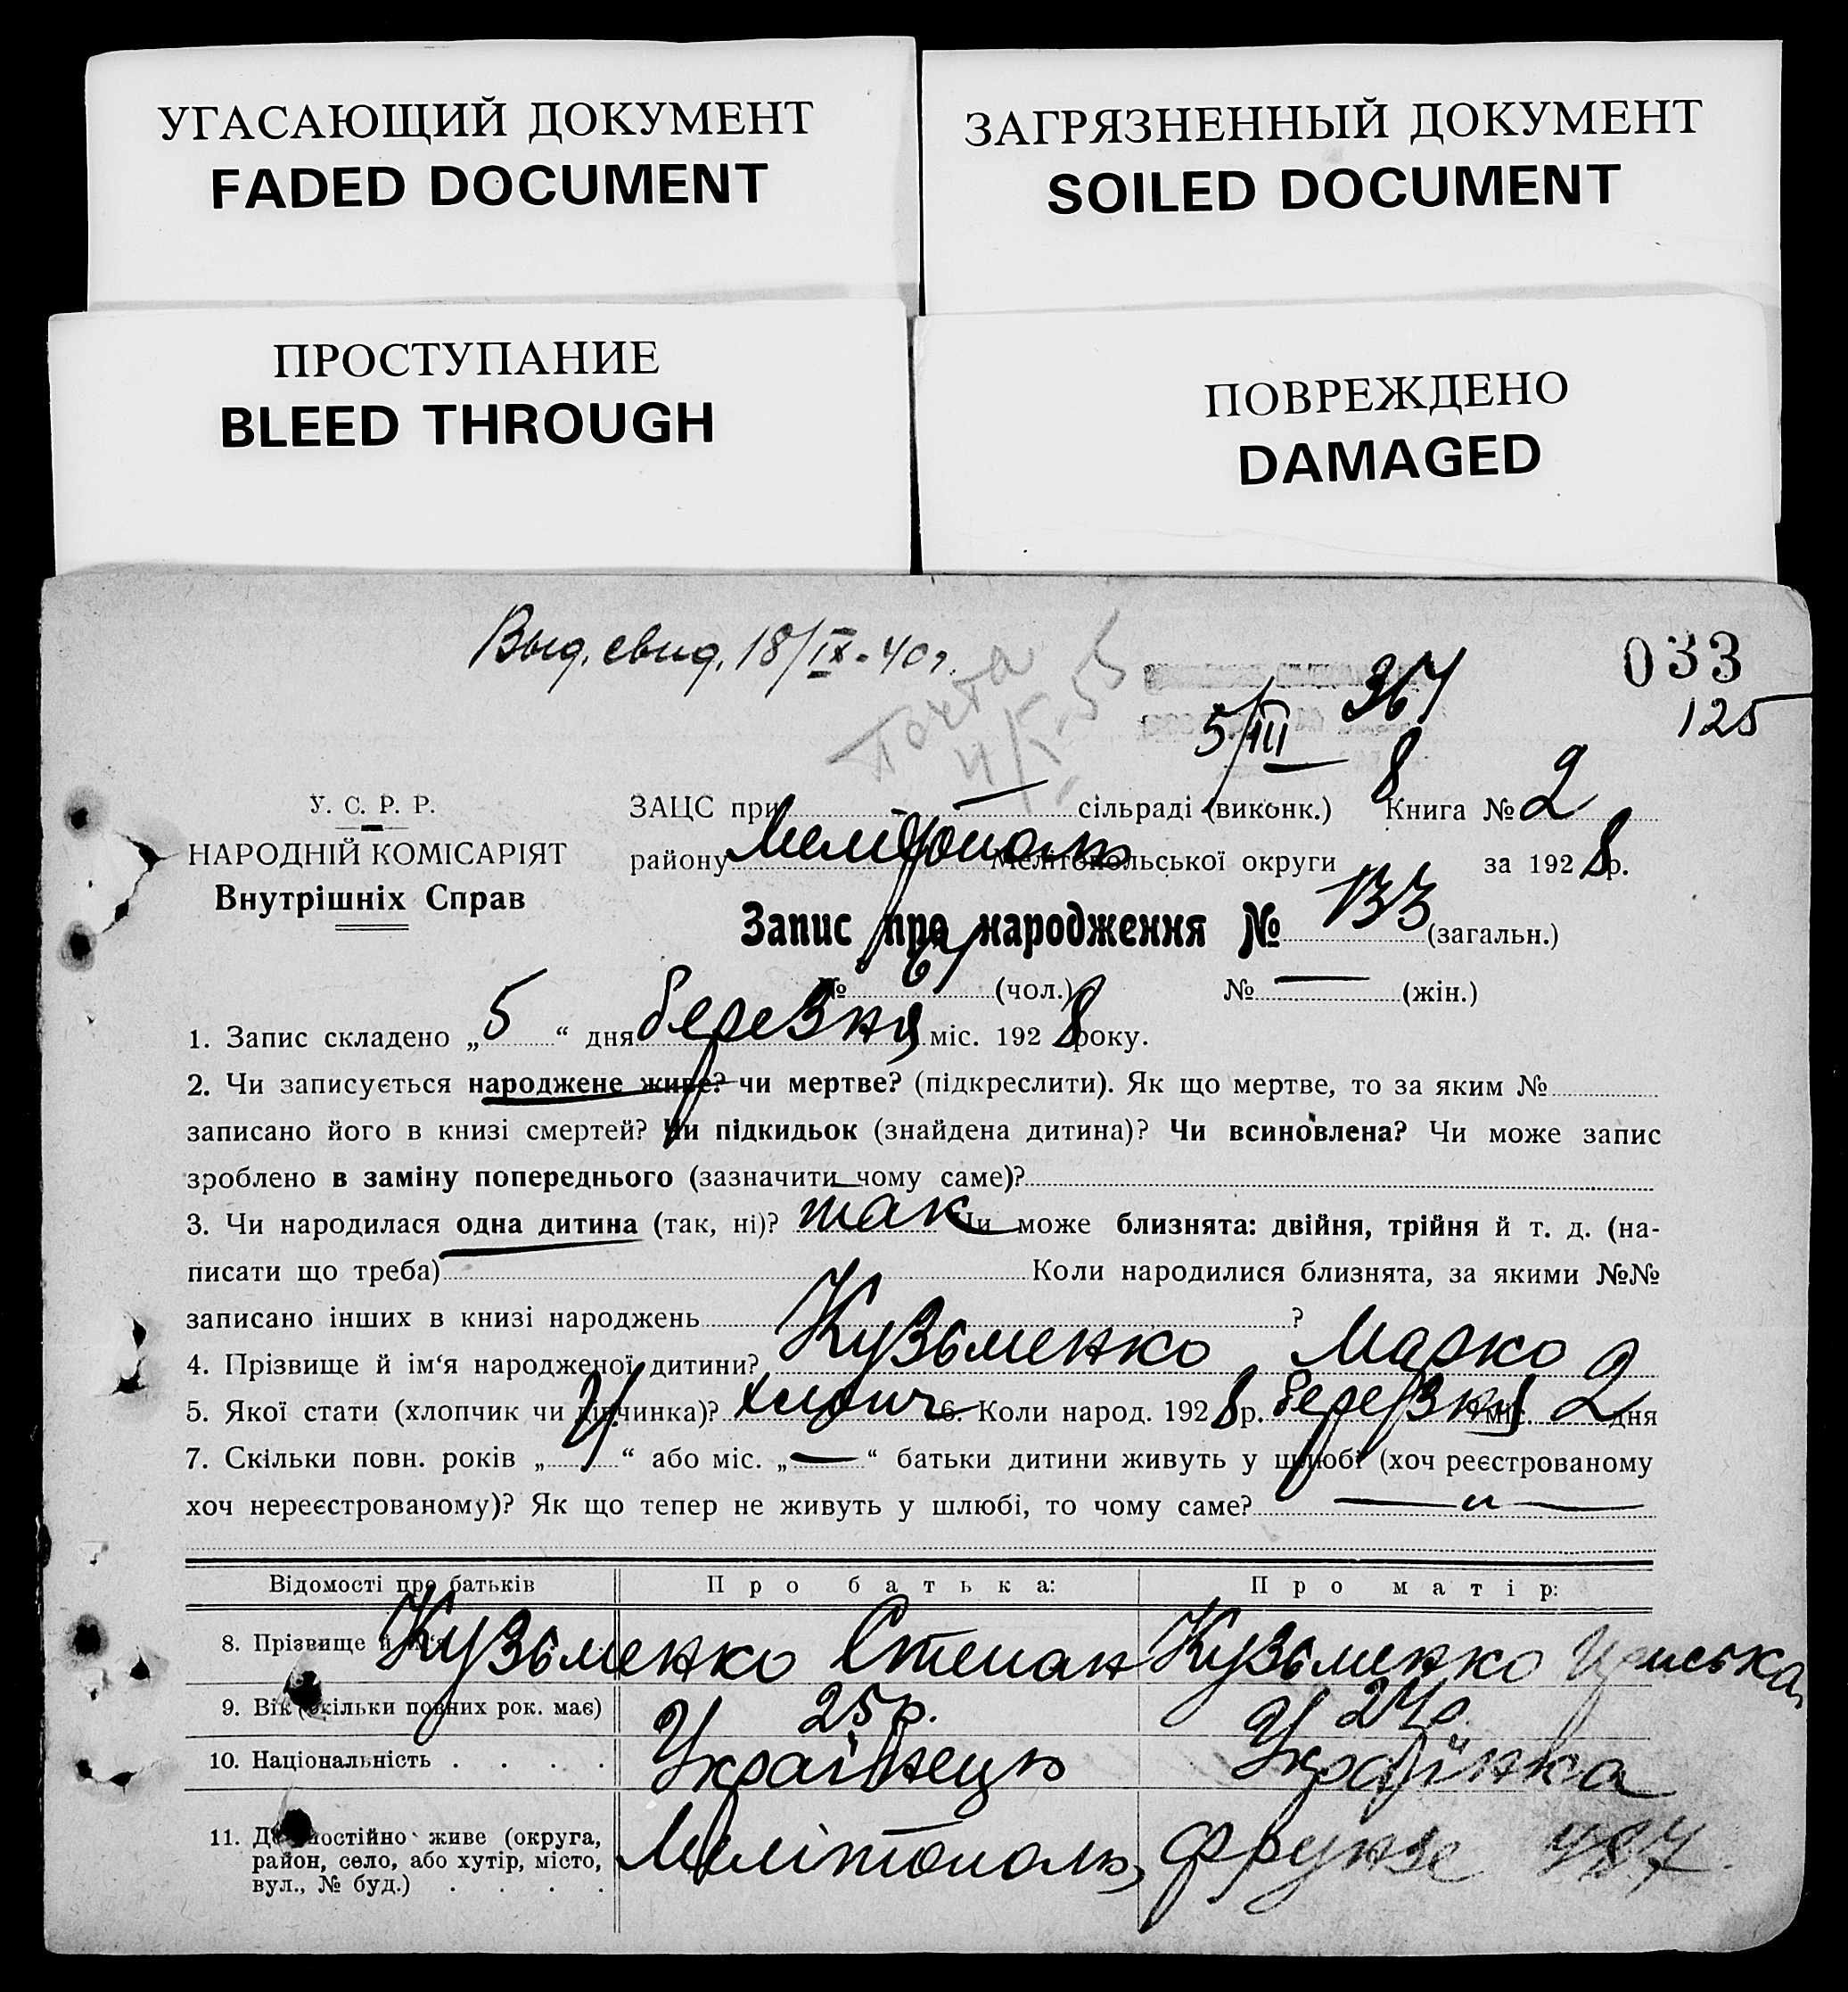 УГАСАЮЩИЙ ДОКУМЕНТ
FADED DOCUMENT
ЗАГРЯЗНЕННЫЙ ДОКУМЕНТ
SOILED DOCUMENT
ПРОСТУПАНИЕ
BLEED THROUGH
ПОВРЕЖДЕНО
DAMAGED
Выд. свид. 18/IX-40 г.
Почта
033
125
367
5/III
У. С. Р. Р.
НАРОДНІЙ КОМІСАРІЯТ
Внутрішніх Справ
ЗАЦС при — сільраді (виконк.) Книга № 2
району Мелітополь Мелітопольської округи за 1928 р.
Запис про народження № 133 (загальн.)
№ 67 (чол.) № — (жін.)
1. Запис складено „5“ дня березня міс. 1928 року.
2. Чи записується народжене живе? чи мертве? (підкреслити). Як що мертве, то за яким №
записано його в книзі смертей? Чи підкидьок (знайдена дитина)? Чи всиновлена? Чи може запис
зроблено в заміну попереднього (зазначити чому саме)?
3. Чи народилася одна дитина (так, ні)? так Чи може близнята: двійня, трійня й т. д. (на-
писати що треба) Коли народилися близнята, за якими №№
записано інших в книзі народжень ?
4. Прізвище й ім‘я народженої дитини? Кузьменко Марко
5. Якої стати (хлопчик чи дівчинка)? хлопч 6. Коли народ. 1928 р. березня міс. 2 дня
7. Скільки повн. років „ “ або міс. „—“ батьки дитини живуть у шлюбі (хоч реєстрованому
хоч нереєстрованому)? Як що тепер не живуть у шлюбі, то чому саме? — „ —
Відомості про батьків Про батька: Про матір:
8. Прізвище й ім‘я Кузьменко Степан Кузьменко
9. Вік (скільки повних рок. має) 25 р. 24 р.
10. Національність . . . . Українець Українка
11. Де постійно живе (округа,
район, село, або хутір, місто,
вул., № буд.) . . . . Мелітополь, Фрунзе 487.